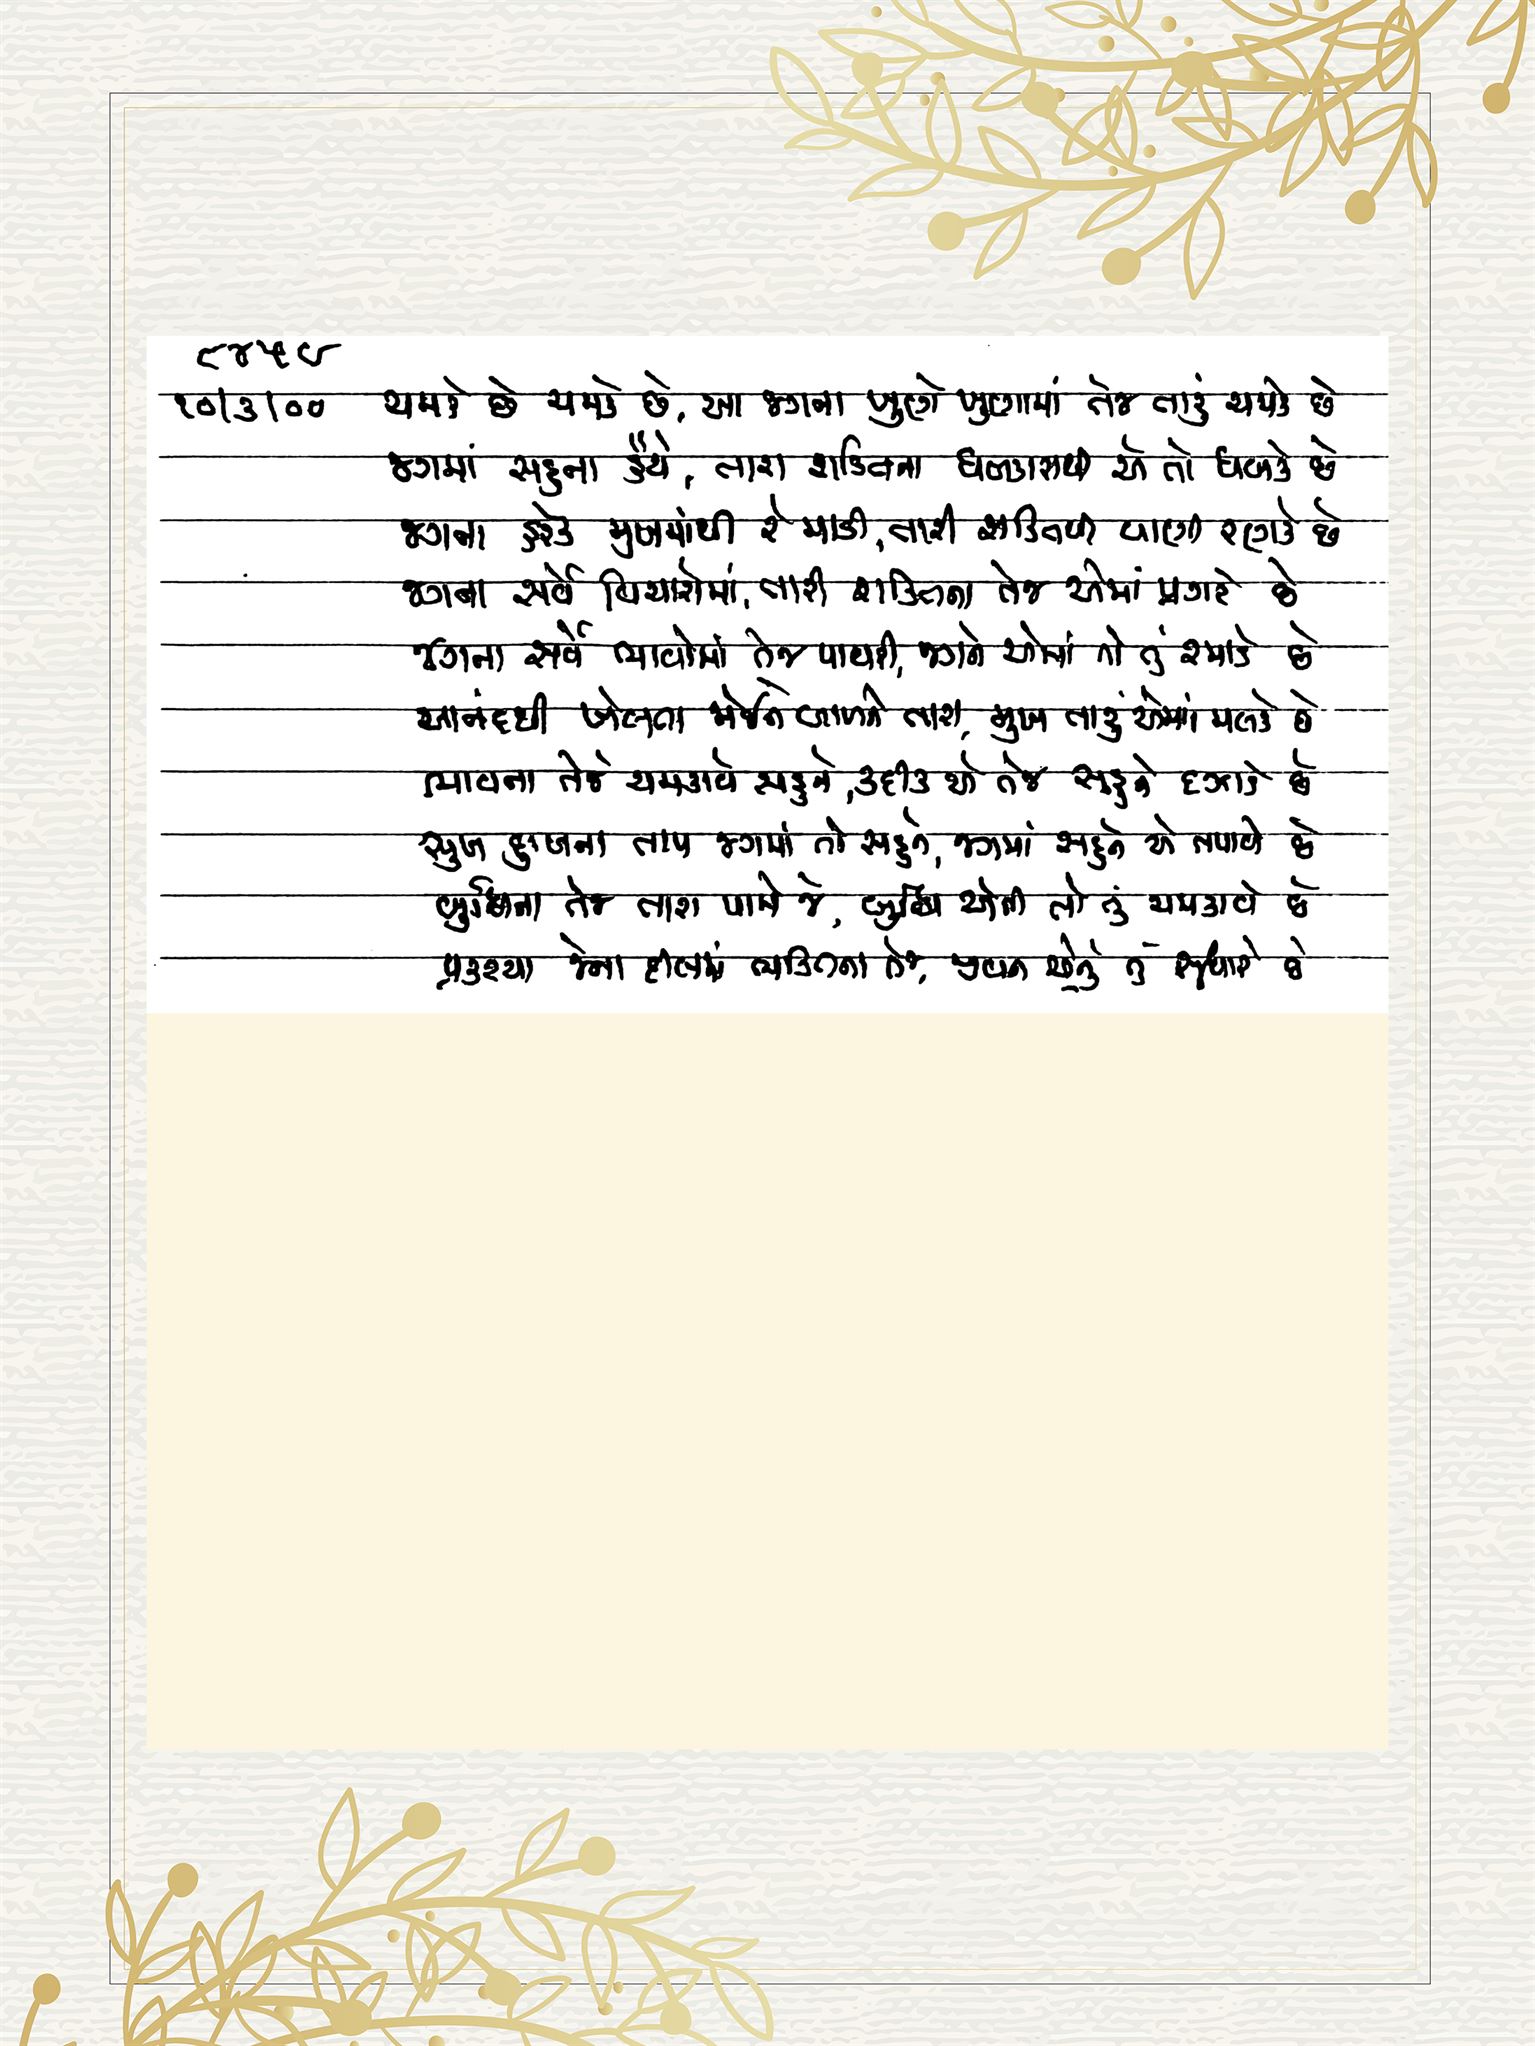 ૮૪૫૯
૧૦/૩/૦૦ ચમકે છે ચમકે છે, આ જગના ખુણે ખુણામાં તેજ તારું ચમકે છે
જગમાં સહુના હૈંયે, તારા શક્તિના ધબકારાથી એ તો ધબકે છે
જગના હરેક મુખમાંથી રે માડી, તારી શક્તિની વાણી રણકે છે
જગના સર્વે વિચારોમાં, તારી શક્તિના તેજ એમાં પ્રગટે છે
જગના સર્વે ભાવોમાં તેજ પાથરી, જગને એમાં તો તું રમાડે છે
આનંદથી ખેલતા જોઈને બાળને તારા, મુખ તારું એમાં મલકે છે
ભાવના તેજે ચમકાવે સહુને, કદીક એ તેજ સહુને દઝાડે છે
સુખ દુઃખના તાપ જગમાં તો સહુને, જગમાં સહુને એ તપાવે છે
બુદ્ધિના તેજ તારા પામે જે, બુદ્ધિ એની તો તું ચમકાવે છે
પ્રકટયા જેના દીલમાં ભક્તિના તેજ, જીવન એનું તું